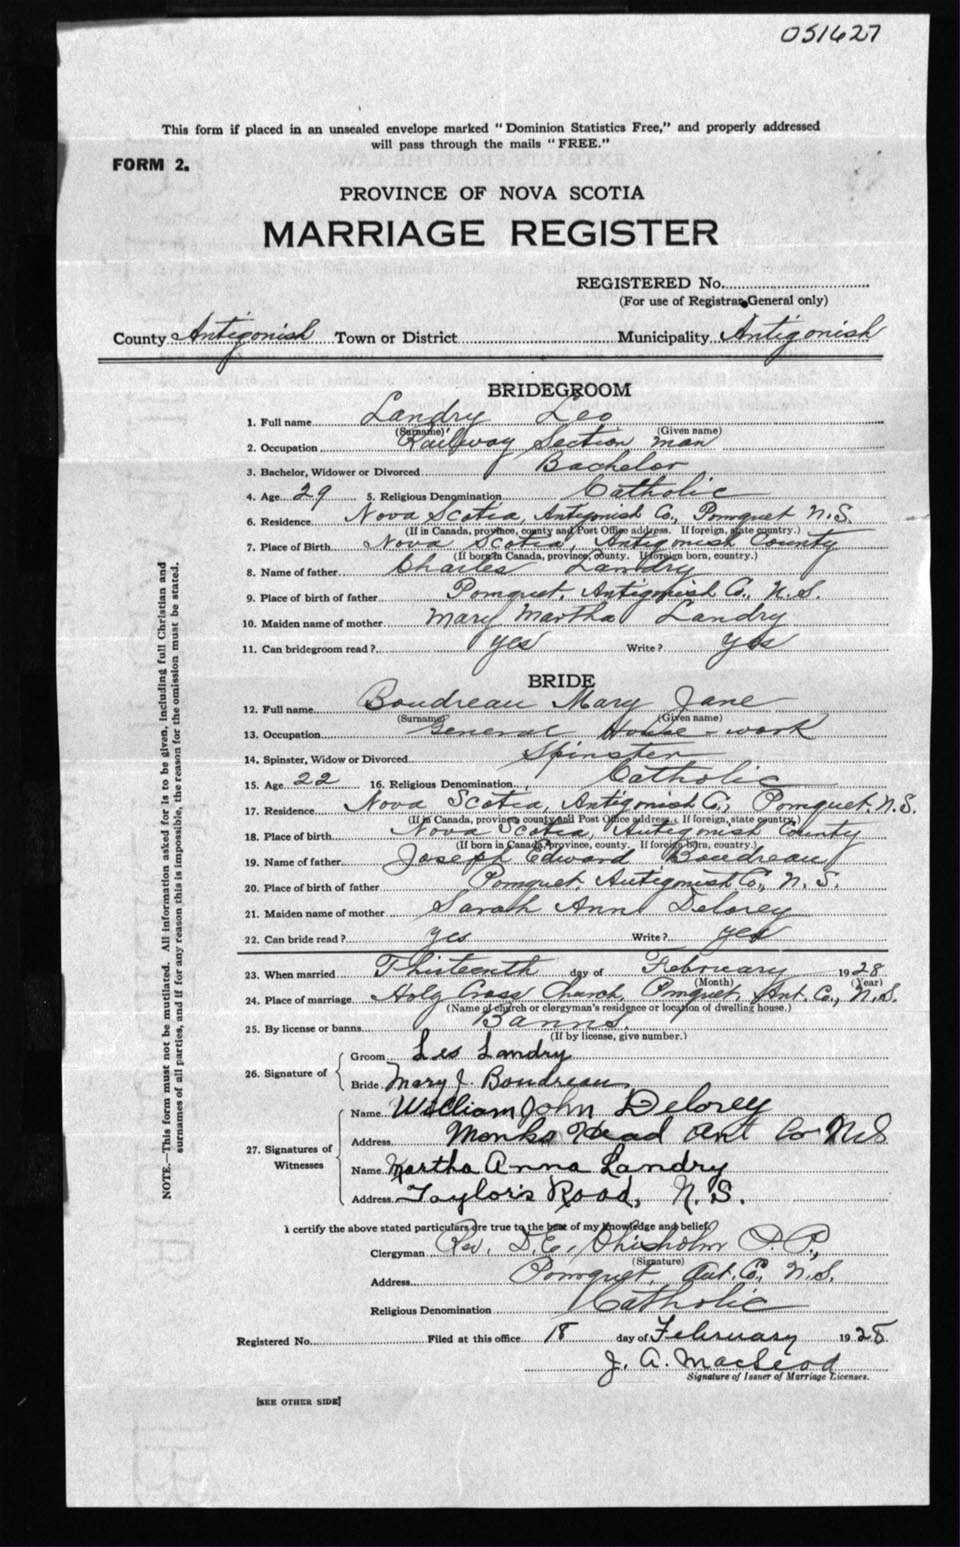 051627
This form if placed in an unsealed envelope marked "Dominion Statistics Free," and properly addressed
will pass through the mails "FREE."
FORM 2.
PROVINCE OF NOVA SCOTIA
MARRIAGE REGISTER
REGISTERED No.
(For use of Registrar General only)
County Antigonish Town or District Municipality Antigonish
BRIDEGROOM
1. Full name Landry Leo
(Surname) (Given name)
2. Occupation Railway Section man
3. Bachelor, Widower or Divorced Bachelor
4. Age 29 5. Religious Denomination Catholic
6. Residence Nova Scotia, Antigonish Co., Pomquet N.S.
(If in Canada, province, county and Post Office address. If foreign, state country.)
7. Place of Birth Nova Scotia, Antigonish County
(If born in Canada, province, county. If foreign born, country.)
8. Name of father Charles Landry
9. Place of birth of father Pomquet, Antigonish Co., N.S.
10. Maiden name of mother Mary Martha Landry
11. Can bridegroom read? yes Write? yes
BRIDE
12. Full name Boudreau Mary Jane
(Surname) (Given name)
13. Occupation General House-work
14. Spinster, Widow or Divorced Spinster
15. Age 22 16. Religious Denomination Catholic
17. Residence Nova Scotia, Antigonish Co., Pomquet, N.S.
(If in Canada, province county and Post Office address. If foreign, state country.)
18. Place of birth Nova Scotia, Antigonish County
(If born in Canada, province, county. If foreign born, country.)
19. Name of father Joseph Edward Boudreau
20. Place of birth of father Pomquet, Antigonish Co., N.S.
21. Maiden name of mother Sarah Ann Delorey
22. Can bride read? yes Write? yes
23. When married Thirteenth day of February 1928
(Month) (Year)
24. Place of marriage Holy Cross Church, Pomquet, Ant. Co., N.S.
(Name of church or clergyman's residence or location of dwelling house.)
25. By license or banns Banns.
(If by license, give number.)
26. Signature of Groom Leo Landry
Bride Mary J. Boudreau
27. Signatures of Witnesses Name William John Delorey
Address Monks Head Ant Co N.S
Name Martha Anna Landry
Address Taylor's Road, N.S.
I certify the above stated particulars are true to the best of my knowledge and belief.
Clergyman Rev. D.E. Chisholm P.P.,
(Signature)
Address Pomquet, Ant. Co., N.S.
Religious Denomination Catholic
Registered No. Filed at this office 18 day of February 1928
J. A. MacLeod
Signature of Issuer of Marriage Licenses.
[SEE OTHER SIDE]
NOTE.—This form must not be mutilated. All information asked for is to be given, including full Christian and
surnames of all parties, and if for any reason this is impossible, the reason for the omission must be stated.